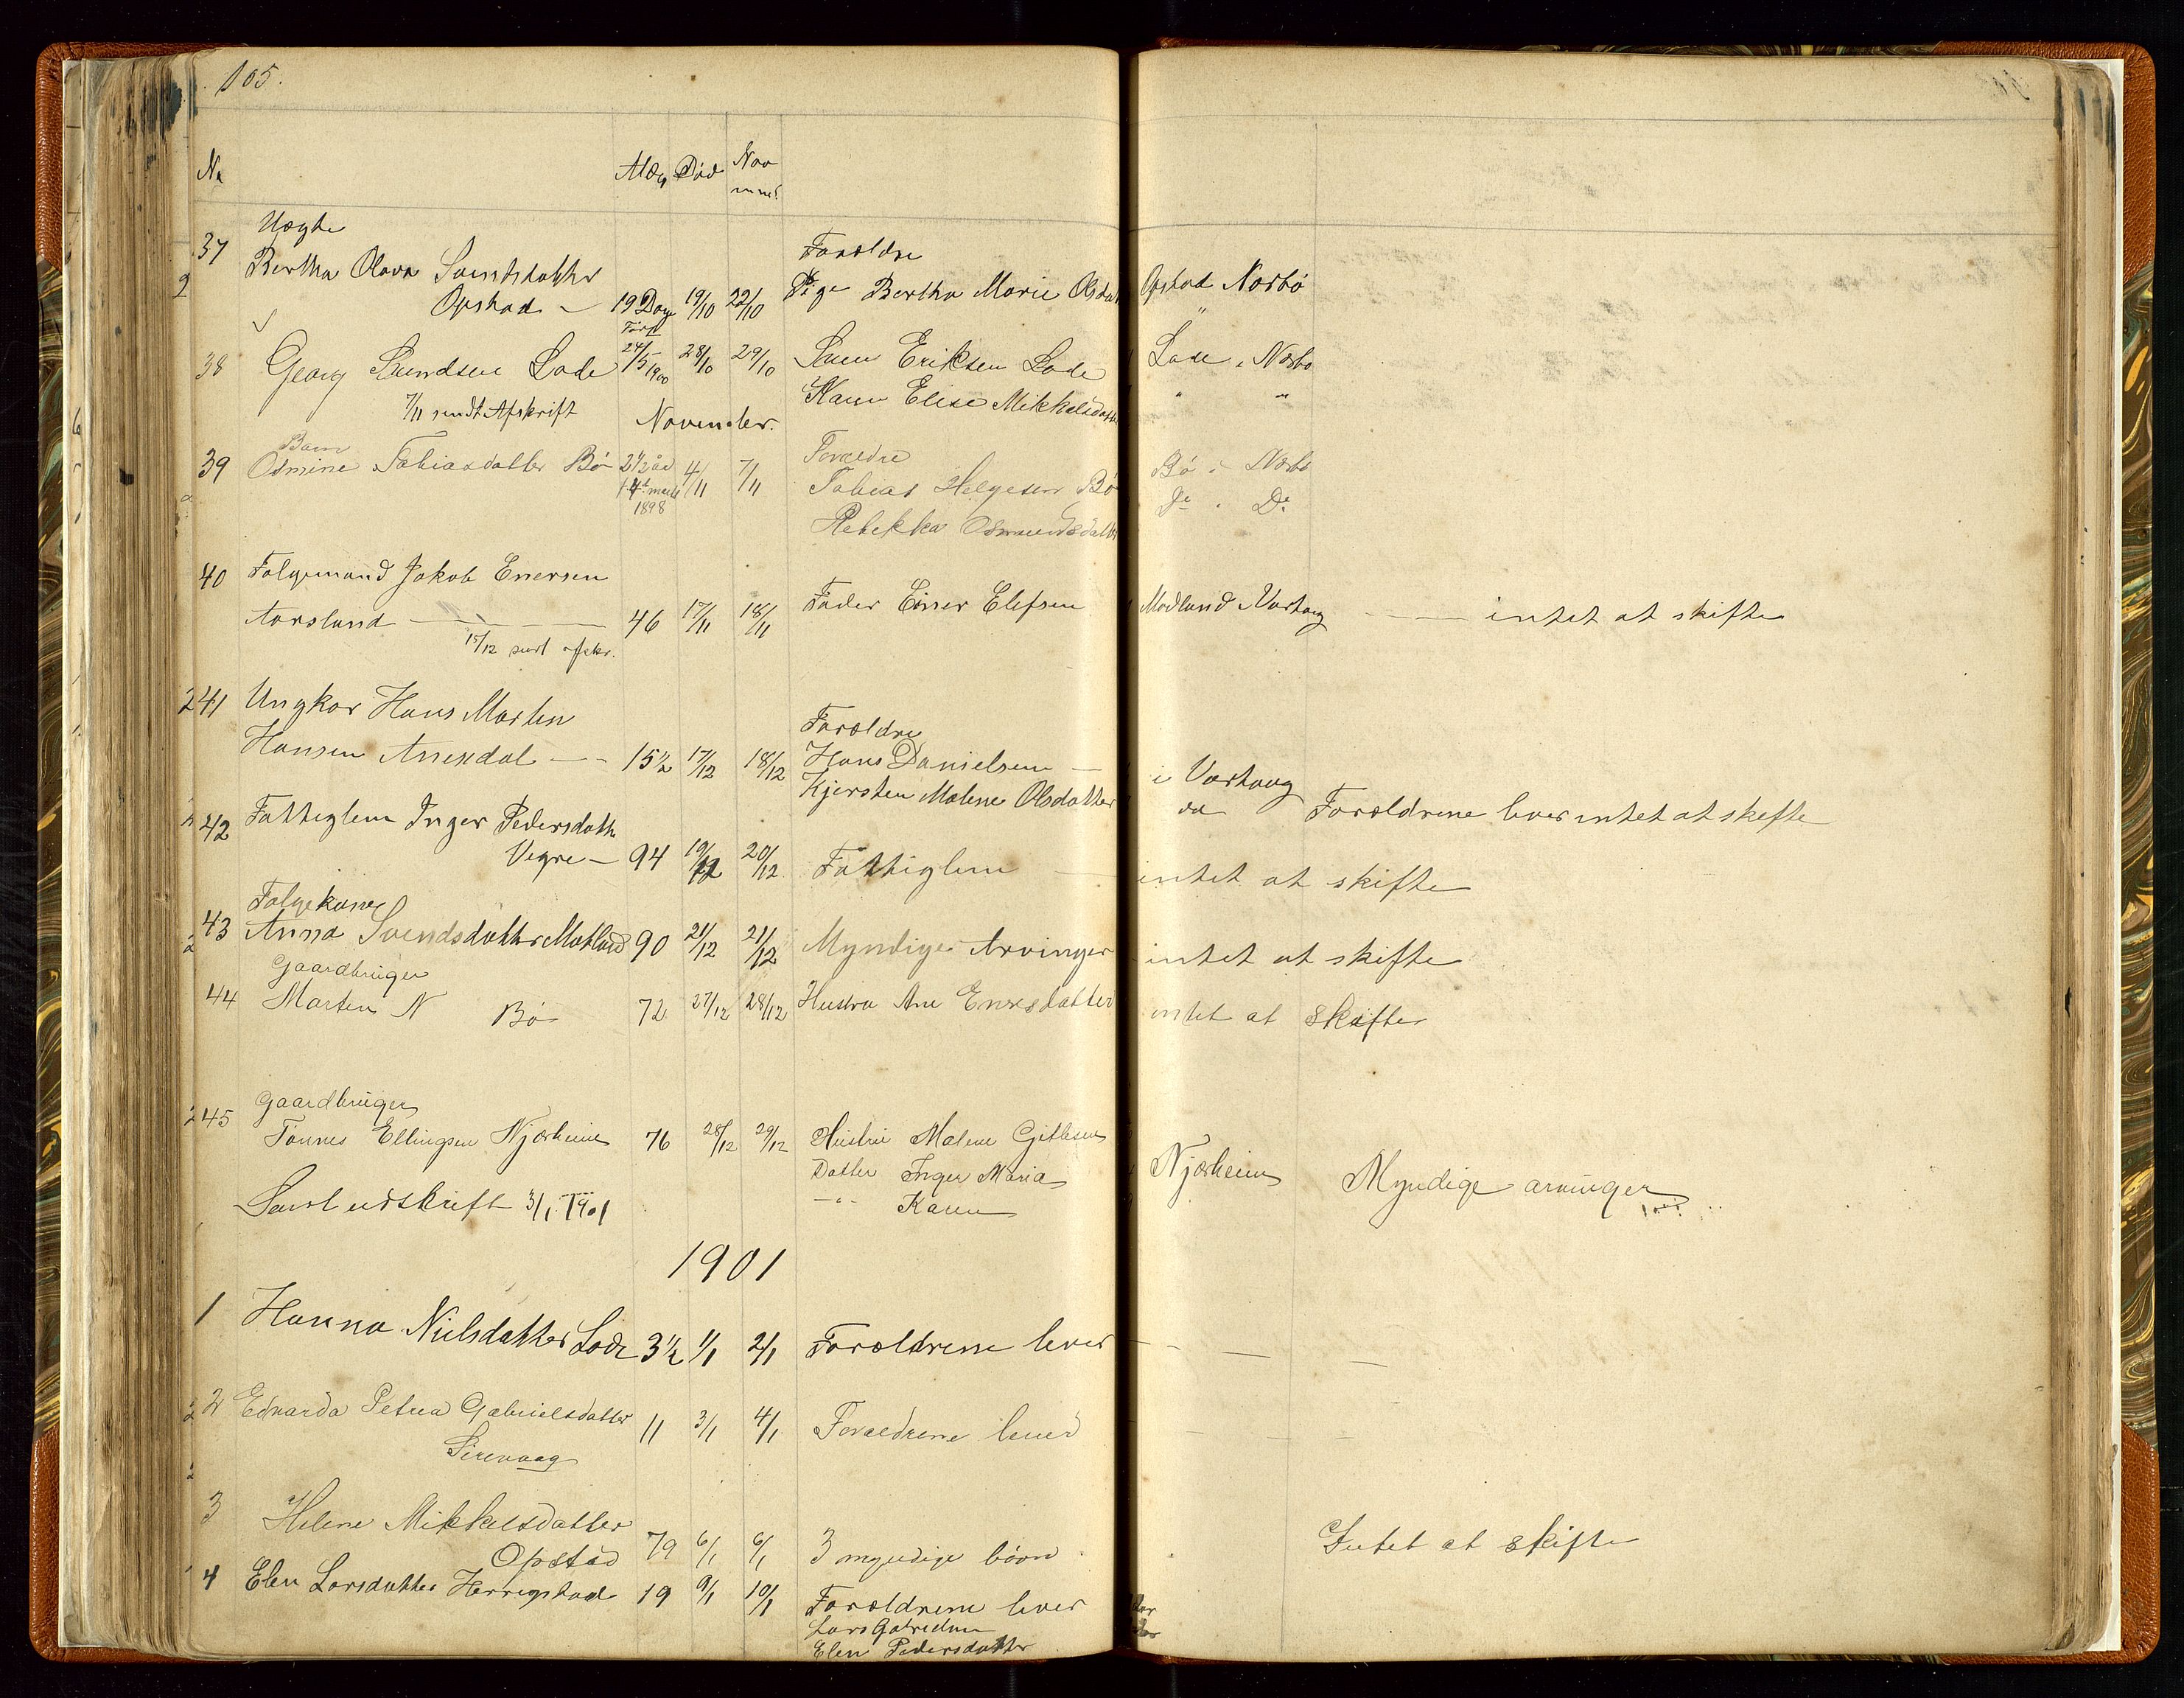 105.
No Alder Død Nov
37 Uægte
Bertha Olava Svendsdatter Forældre
Opstad — 19 Dage 19/10 22/10 Pige Bertha Marie Olsdatt Opstad Narbø
Født
38 Georg Svendsen Lode 24/5 1900 28/10 29/10 Sven Eriksen Lode Lode i Narbø
7/11 sendt Afskrift Karen Elise Mikkelsdatt " "
November.
39 Barn
Osmine Tobiasdatter Bø 2 1/2 år 4/11 7/11 Forældre
f. 4de mai 1898 Tobias Helgesen Bø Bø i Narbø
Rebekka Osmundsdatt Do . Do
40 Folgemand Jakob Enersen
Aarsland — 46 17/11 18/11 Fader Einer Elefsen Modland Varhaug — intet at skifte
15/12 sendt afskr.
241 Ungkar Hans Martin
Hansen Arnesdal — 15 1/2 17/12 18/12 Forældre
Hans Danielsen — i Varhaug
Kjersten Malene Olsdatter do Forældrene lever intet at skifte
42 Fattiglem Inger Pedersdatt
Vigre — 94 19/12 20/12 Fattiglem — intet at skifte
43 Folgekone
Anna Svendsdatter Motland 90 21/12 21/12 Myndige Arvinger intet at skifte
44 Gaardbruger
Morten N Bø 72 27/12 28/12 Hustru Ane Enersdatter intet at skifte
245 Gaardbruger
Tønnes Ellingsen Njærheim 76 28/12 29/12 Hustru Malene Gitlesen
Datter Inger Maria Njærheim Myndige arvinger
Sendt udskrift 3/1 1901 —"— Karen
1901
1 Hanna Nielsdatter Lode 3 1/2 1/1 2/1 Forældrene lever — — —
2 Edvarda Petrea Gabrielsdatter 11 3/1 4/1 Forældrene lever
Sirevaag
3 Helene Mikkelsdatter
Opstad 79 6/1 6/1 3 myndige børn Intet at skifte
4 Elen Larsdatter Herrigstad 19 9/1 10/1 Forældrene lever
Lars Gabrielsen
Elen Pedersdatter